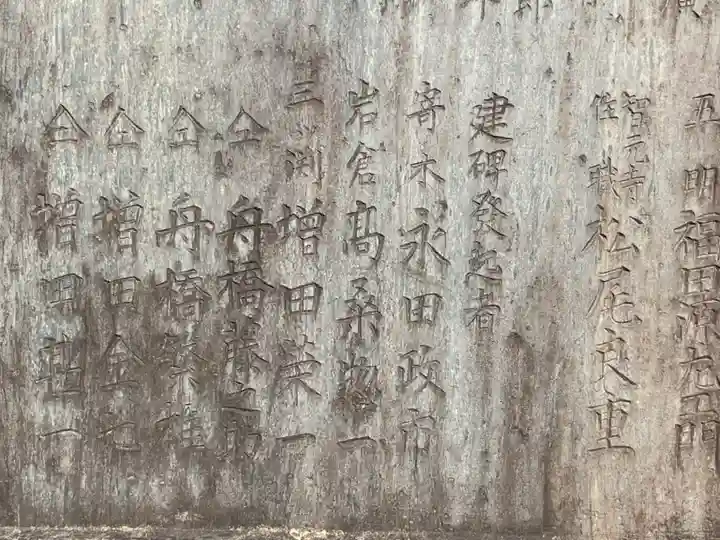 五明 福田源左エ門
智元寺住職 松尾良重
建碑發起者
寄木 永田政市
岩倉 高桑物一
三ッ渕 増田荣一
仝 舟橋藤之助
仝 舟橋繁雄
仝 増田金七
仝 増田勘一